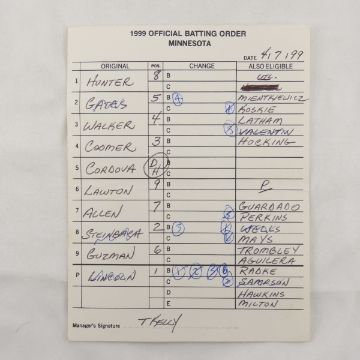 1999 OFFICIAL BATTING ORDER
MINNESOTA
DATE 4/7/99
ORIGINAL POS. CHANGE ALSO ELIGIBLE
1 HUNTER 8 B
C
2 GATES 5 B MIENTKIEWICZ
C KOSKIE
3 WALKER 4 B LATHAM
C VALENTIN
4 COOMER 3 B HOCKING
C
5 CORDOVA DH B
C
6 LAWTON 9 B P
C
7 ALLEN 7 B GUARDADO
C PERKINS
8 STEINBACH 2 B WELLS
C MAYS
9 GUZMAN 6 B TROMBLEY
C AGUILERA
P LINCOLN 1 B RADKE
C SAMPSON
D HAWKINS
E MILTON
Manager's Signature TKELLY